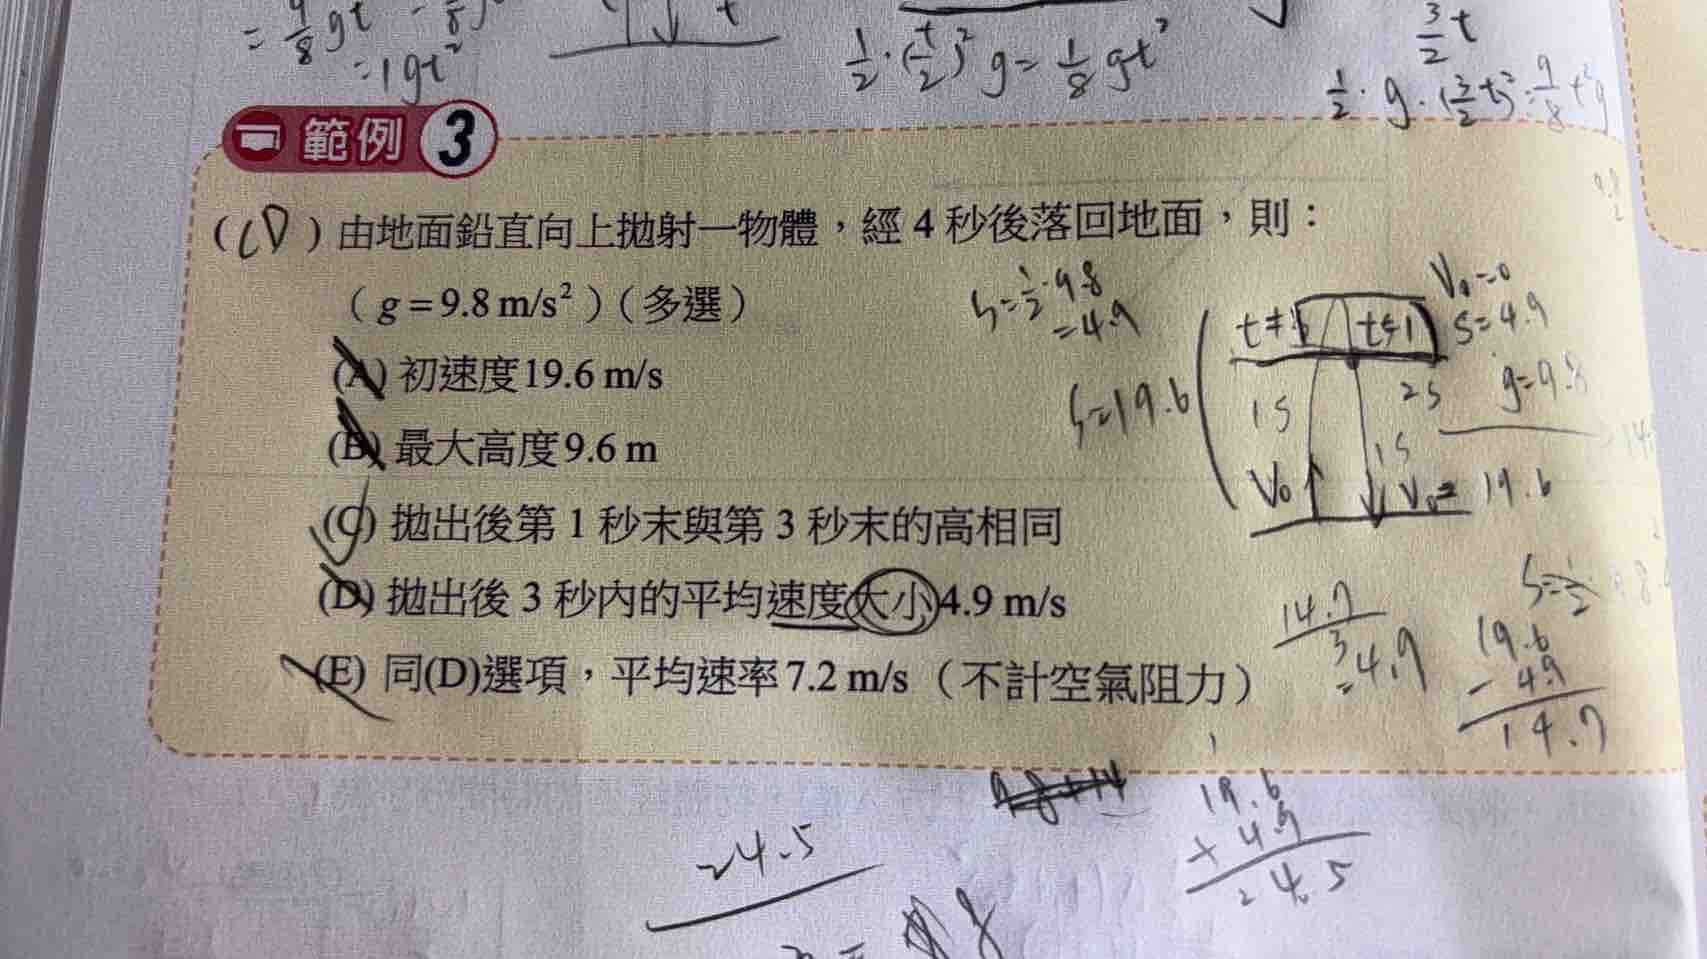 = 9/8 gt
= 1gt²
t
1/2·(t/2)²g = 1/8 gt²
3/2 t
1/2·g·(3/2 t)² = 9/8 t²g
範例 3
(CD)由地面鉛直向上拋射一物體，經 4 秒後落回地面，則：
（g = 9.8 m/s²）（多選）
(A) 初速度19.6 m/s
(B) 最大高度9.6 m
(C) 拋出後第 1 秒末與第 3 秒末的高相同
(D) 拋出後 3 秒內的平均速度大小4.9 m/s
(E) 同(D)選項，平均速率7.2 m/s（不計空氣阻力）
S=1/2·9.8
=4.9
S=19.6
V₀=0
t=1
S=4.9
g=9.8
1S
2S
1S
V₀
V₀= 19.6
14.7
3
=4.9
19.6
- 4.9
14.7
19.6
+ 4.9
24.5
24.5